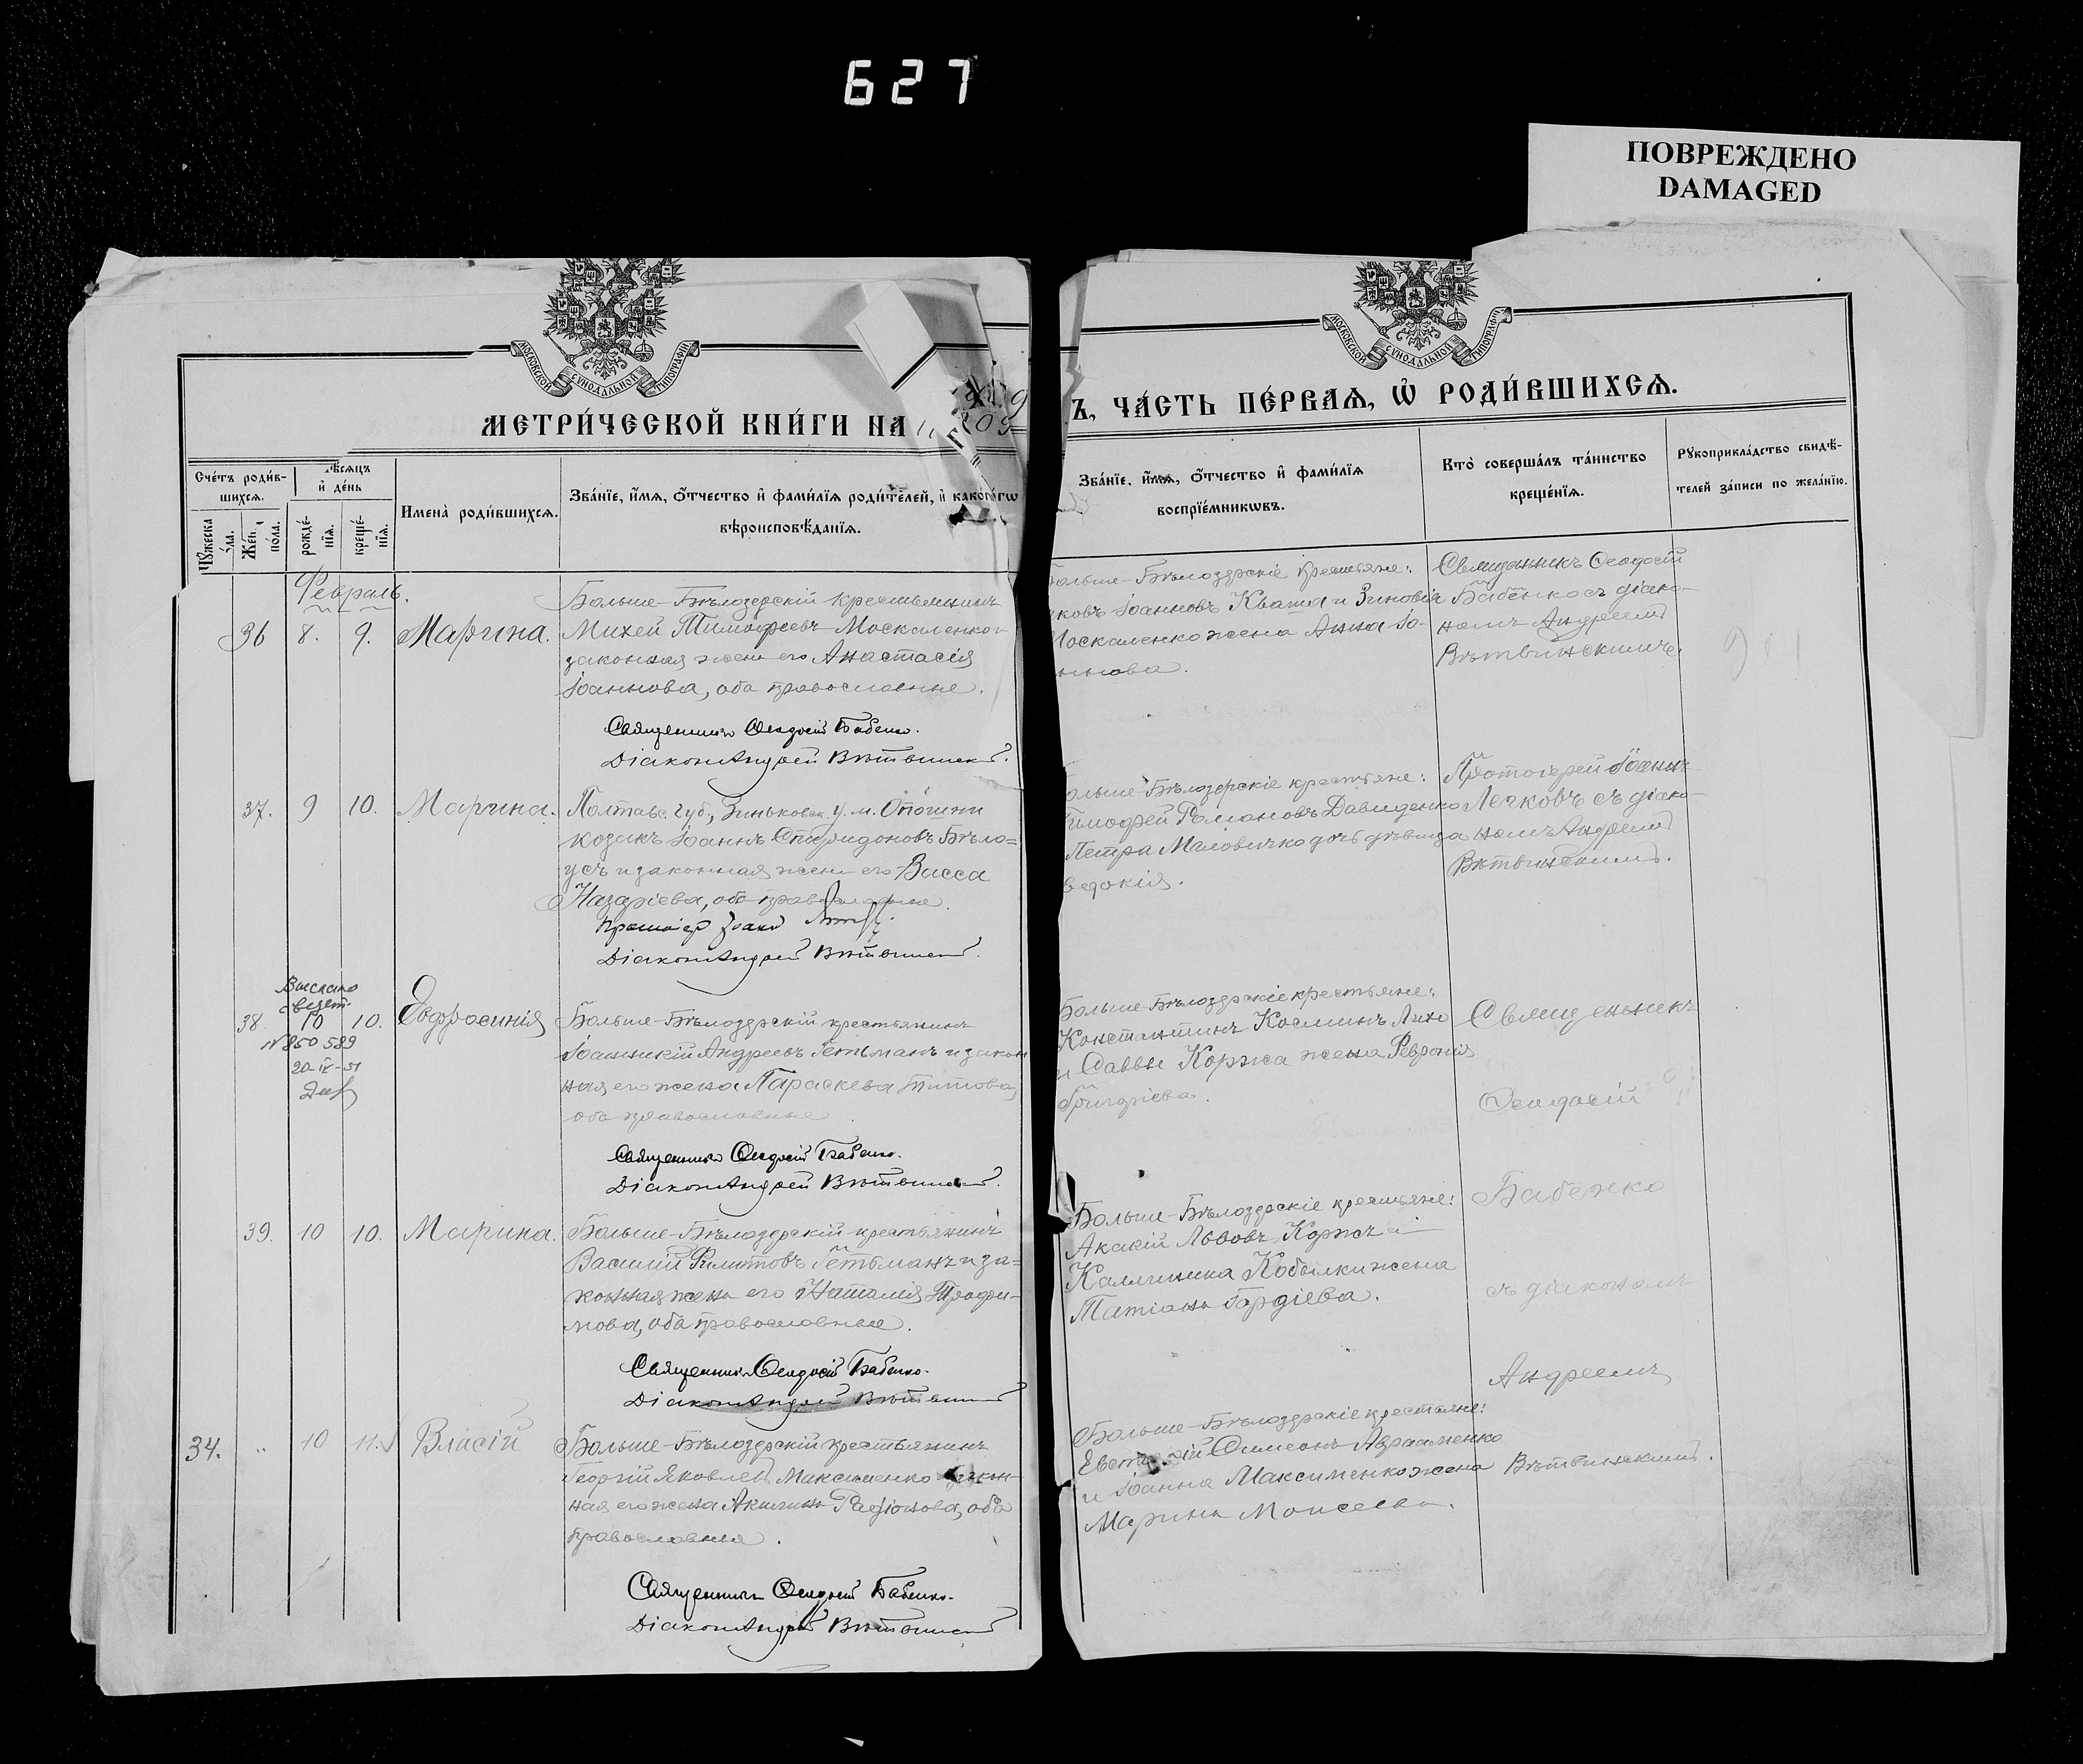 627
ПОВРЕЖДЕНО
DAMAGED
МОСКОВСКОЙ СУНОДАЛЬНОЙ ТИПОГРАФІИ
МОСКОВСКОЙ СУНОДАЛЬНОЙ ТИПОГРАФІИ
МЕТРИ́ЧЕСКОЙ КНИ́ГИ НА
Ъ, ЧА́СТЬ ПЕ́РВАѦ, Ѡ҆ РОДИ́ВШИХСѦ.
Сче́тъ роди́в-
шихсѧ.
Мѣ́сѧцъ
и҆ де́нь
рожде́-
нїѧ.
креще́-
нїѧ.
Имена̀ роди́вшихсѧ.
Зва́нїе, и҆́мѧ, ѻ҆́тчество и҆ фами́лїѧ роди́телей, и҆ како́гѡ
вѣроисповѣ́данїѧ.
Зва́нїе, и҆́мѧ, ѻ҆́тчество и҆ фами́лїѧ
воспрїе́мникѡвъ.
Кто̀ соверша́лъ та́инство
креще́нїѧ.
Рꙋкоприкла́дство свидѣ́-
телей за́писи по жела́нїю.
Февраль.
36 8. 9. Марина.
Больше-Бѣлозерскій крестьянинъ
Михей Тимофеевъ Москаленко и
законная жена его Анастасія
Іоаннова, оба православные.
Священникъ Ѳеодосій Бабенко.
Діаконъ Андрей Вѣтвинскій.
Больше-Бѣлозерскіе крестьяне:
ковъ Іоанновъ Кваша и Зиновія
Москаленко жена Анна Іо-
ннова.
Священникъ Ѳеодосій
Бабенко съ діако-
номъ Андреемъ
Вѣтвинскимъ.
37. 9 10. Марина.
Полтавс. губ., Зиньковск. у. м. Опошни
козакъ Іоаннъ Спиридоновъ Бѣло=
усъ и законная жена его Васса
Назаріева, оба православные.
Діаконъ Андрей Вѣтвинскій.
ольше-Бѣлозерскіе крестьяне:
имофей Романовъ Давиденко
Петра Маловичко дочь дѣвица
вдокія.
Протоіерей Іоаннъ
Лечковъ съ діако-
номъ Андреемъ
Вѣтвинскимъ.
Выслано
свидет.
38. 10 10. Евфросинія
N 850589
20-IV-51
Больше-Бѣлозерскій крестьянинъ
Іоанникій Андреевъ Гетьманъ и закон
ная его жена Параскева Титова,
оба православные.
Священникъ Ѳеодосій Бабенко.
Діаконъ Андрей Вѣтвинскій.
Больше-Бѣлозерскіе крестьяне:
Константинъ Косминъ Лихо
и Саввы Коржа жена Февронія
Григоріева.
Священникъ
Ѳеодосій
Бабенко
съ діакономъ
Андреемъ
Вѣтвинскимъ.
39. 10 10. Марина.
Больше-Бѣлозерскій крестьянинъ
Василій Филиповъ Гетьманъ и за=
конная жена его Наталія Трофи-
мова, оба православные.
Священникъ Ѳеодосій Бабенко.
Діаконъ Андрей Вѣтвинскій
Больше-Бѣлозерскіе крестьяне:
Акакій Львовъ Коржъ и
Каллиника Кобылки жена
Татіана Гордіева.
34. 10 11. Власій
Больше-Бѣлозерскій крестьянинъ
Георгій Яковлевъ Максименко и закон-
ная его жена Акилина Родіонова, оба
православные.
Священникъ Ѳеодосій Бабенко.
Діаконъ Андрей Вѣтвинскій
Больше-Бѣлозерскіе крестьяне:
Симеонъ Авраменко
и Іоанна Максименко жена
Марина Моисеева.